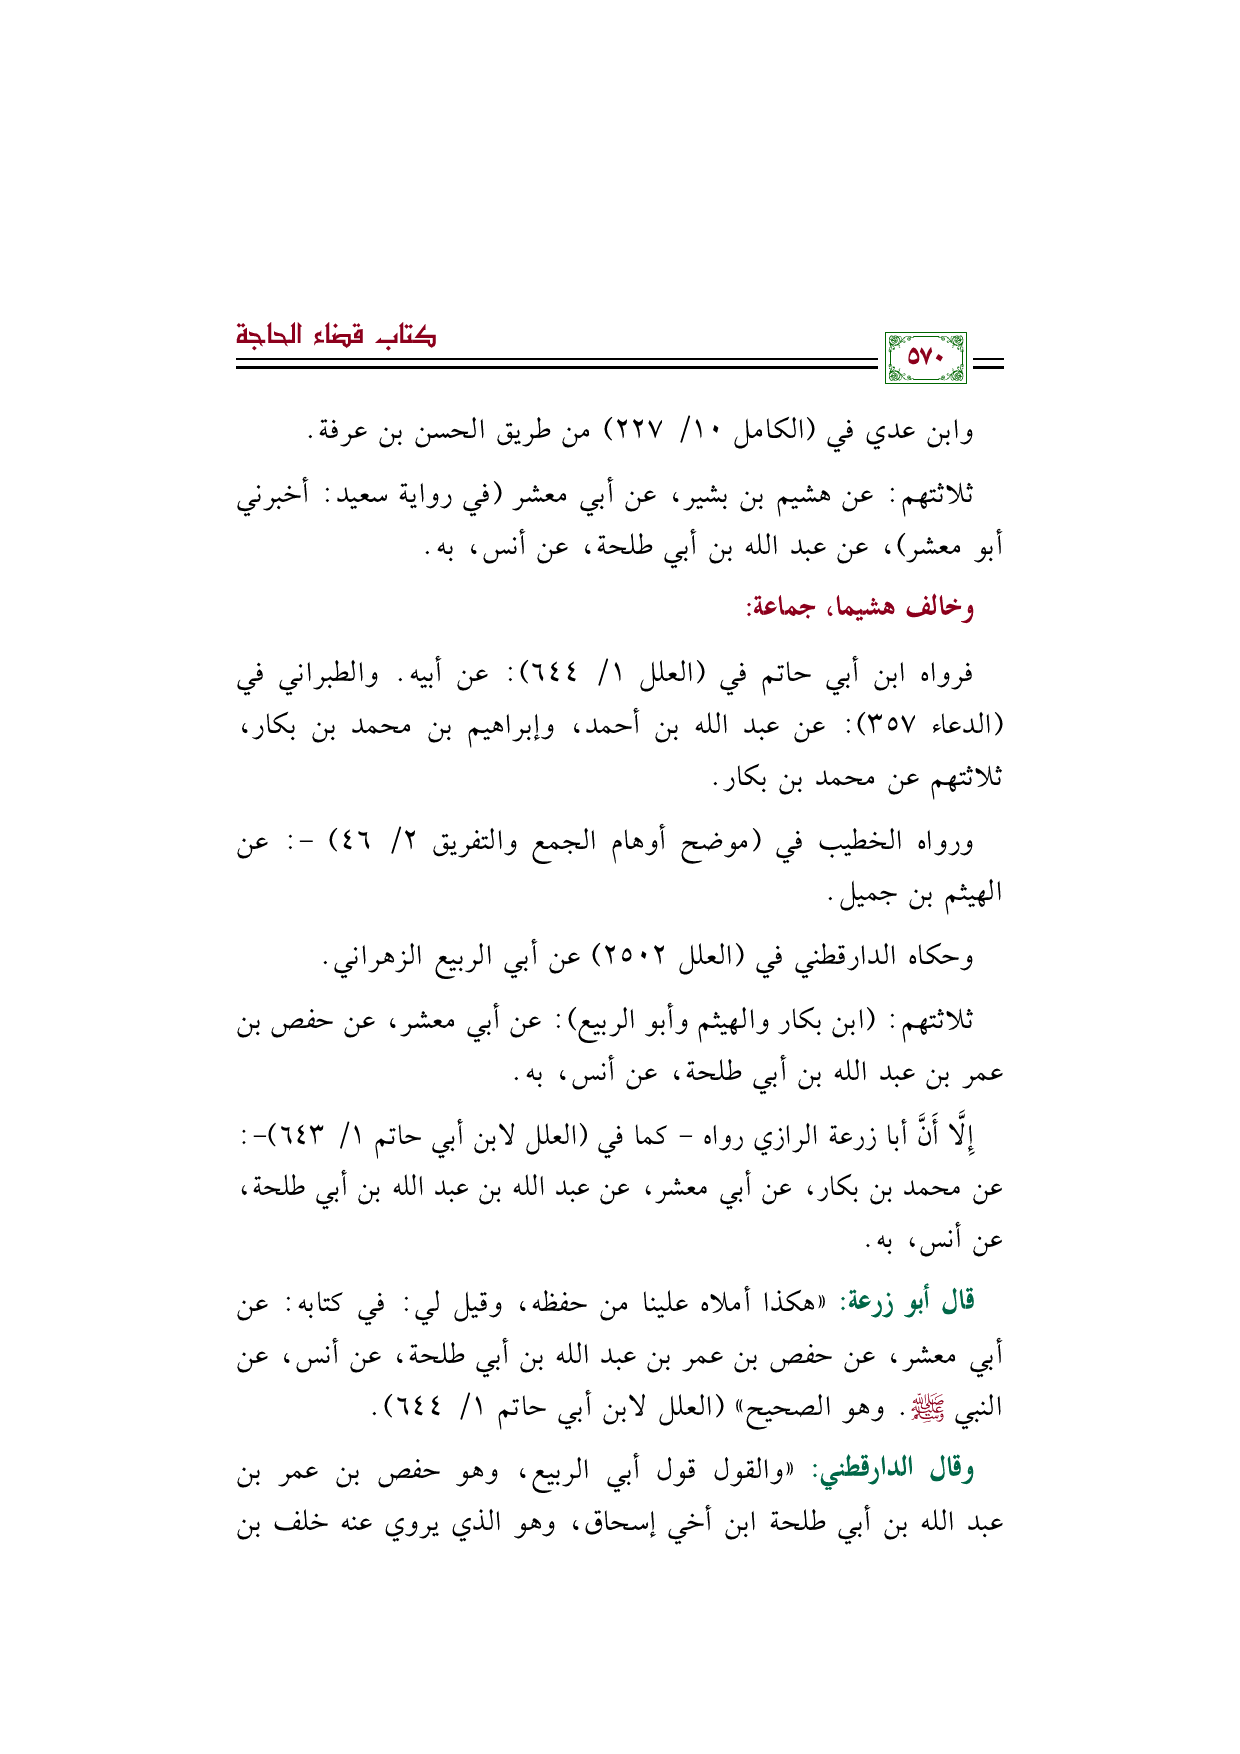 كتاب قضاء الحاجة
٥٧٠
وابن عدي في (الكامل ١٠/ ٢٢٧) من طريق الحسن بن عرفة.
ثلاثتهم: عن هشيم بن بشير، عن أبي معشر (في رواية سعيد: أخبرني
أبو معشر)، عن عبد الله بن أبي طلحة، عن أنس، به.
وخالف هشيما، جماعة:
فرواه ابن أبي حاتم في (العلل ١/ ٦٤٤): عن أبيه. والطبراني في
(الدعاء ٣٥٧): عن عبد الله بن أحمد، وإبراهيم بن محمد بن بكار،
ثلاثتهم عن محمد بن بكار.
ورواه الخطيب في (موضح أوهام الجمع والتفريق ٢/ ٤٦) -: عن
الهيثم بن جميل.
وحكاه الدارقطني في (العلل ٢٥٠٢) عن أبي الربيع الزهراني.
ثلاثتهم: (ابن بكار والهيثم وأبو الربيع): عن أبي معشر، عن حفص بن
عمر بن عبد الله بن أبي طلحة، عن أنس، به.
إِلَّا أَنَّ أبا زرعة الرازي رواه - كما في (العلل لابن أبي حاتم ١/ ٦٤٣)-:
عن محمد بن بكار، عن أبي معشر، عن عبد الله بن عبد الله بن أبي طلحة،
عن أنس، به.
قال أبو زرعة: «هكذا أملاه علينا من حفظه، وقيل لي: في كتابه: عن
أبي معشر، عن حفص بن عمر بن عبد الله بن أبي طلحة، عن أنس، عن
النبي ﷺ. وهو الصحيح» (العلل لابن أبي حاتم ١/ ٦٤٤).
وقال الدارقطني: «والقول قول أبي الربيع، وهو حفص بن عمر بن
عبد الله بن أبي طلحة ابن أخي إسحاق، وهو الذي يروي عنه خلف بن